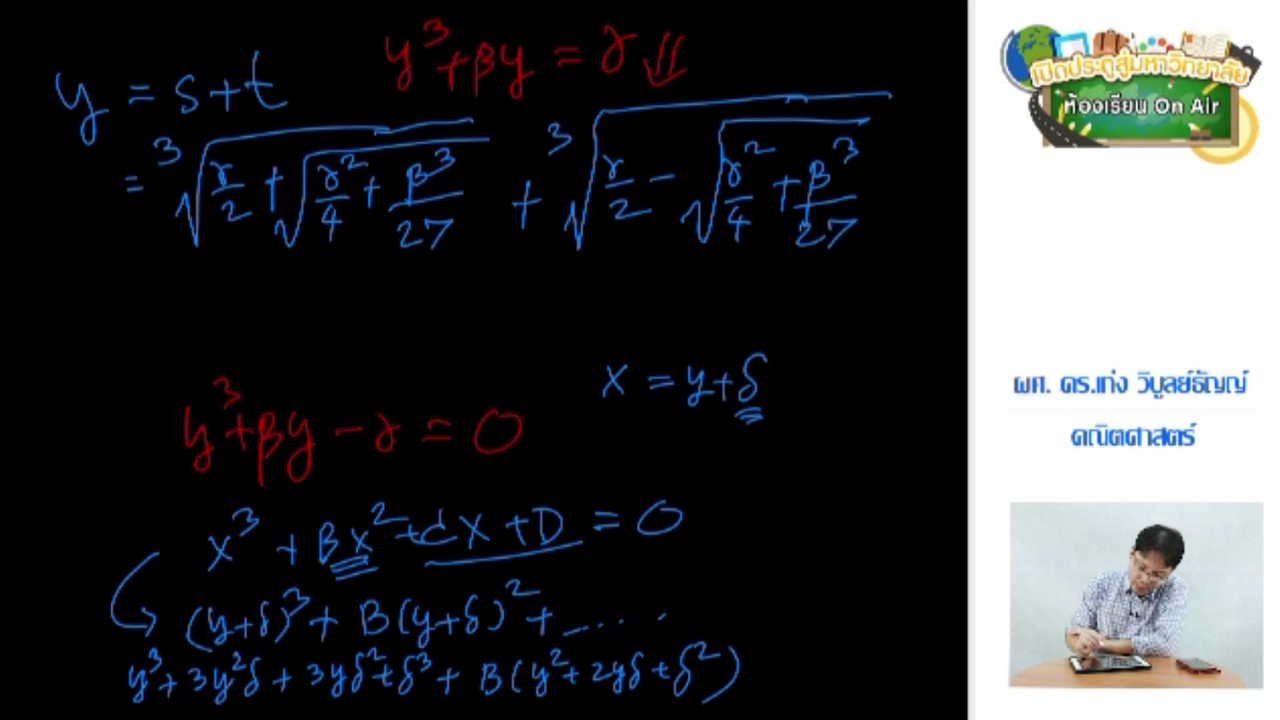 y³+βy = γ
y = s+t
= ³√(γ/2 + √(γ²/4 + β³/27)) + ³√(γ/2 − √(γ²/4 + β³/27))
x = y+δ
y³+βy − γ = 0
x³ + Bx² + Cx + D = 0
(y+δ)³ + B(y+δ)² + ....
y³ + 3y²δ + 3yδ² + δ³ + B(y² + 2yδ + δ²)
เปิดประตูสู่มหาวิทยาลัย
ห้องเรียน On Air
ผศ. ดร.เก่ง วิบูลย์ธัญญ์
คณิตศาสตร์